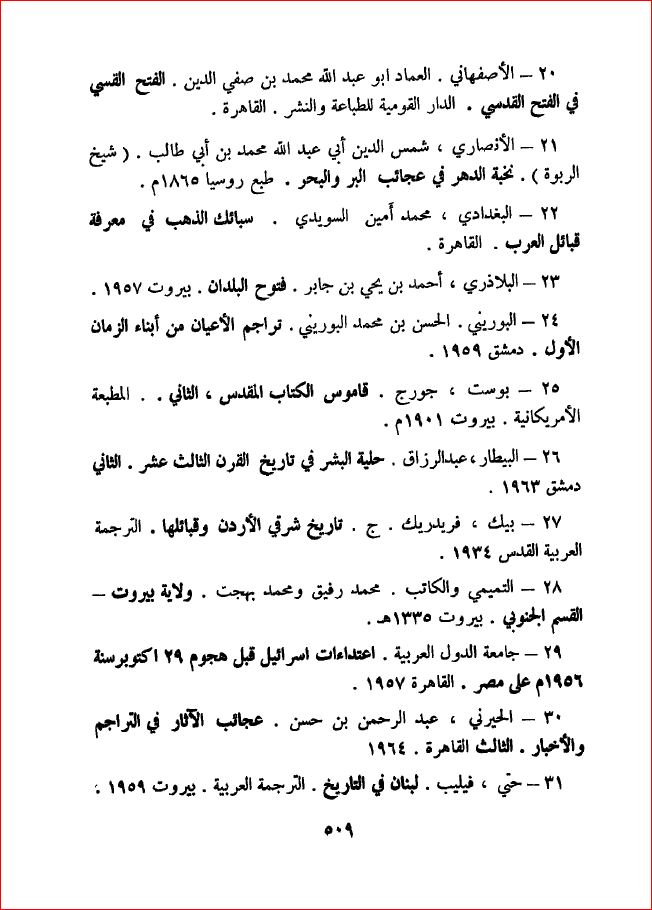 ٢٠ – الأصفهاني . العماد ابو عبد الله محمد بن صفي الدين . الفتح القسي
في الفتح القدسي . الدار القومية للطباعة والنشر . القاهرة .
٢١ – الأنصاري ، شمس الدين أبي عبد الله محمد بن أبي طالب . ( شيخ
الربوة ) . نخبة الدهر في عجائب البر والبحر . طبع روسيا ١٨٦٥م .
٢٢ – البغدادي ، محمد أمين السويدي . سبائك الذهب في معرفة
قبائل العرب . القاهرة .
٢٣ – البلاذري ، أحمد بن يحي بن جابر . فتوح البلدان . بيروت ١٩٥٧ .
٢٤ – البوريني . الحسن بن محمد البوريني . تراجم الأعيان من أبناء الزمان
الأول . دمشق ١٩٥٩ .
٢٥ – بوست ، جورج . قاموس الكتاب المقدس ، الثاني . . المطبعة
الأمريكانية . بيروت ١٩٠١م .
٢٦ – البيطار ، عبدالرزاق . حلية البشر في تاريخ القرن الثالث عشر . الثاني
دمشق ١٩٦٣ .
٢٧ – بيك ، فريدريك . ج . تاريخ شرقي الأردن وقبائلها . الترجمة
العربية القدس ١٩٣٤ .
٢٨ – التميمي والكاتب . محمد رفيق ومحمد بهجت . ولاية بيروت –
القسم الجنوبي . بيروت ١٣٣٥هـ .
٢٩ – جامعة الدول العربية . اعتداءات اسرائيل قبل هجوم ٢٩ اكتوبرسنة
١٩٥٦م على مصر . القاهرة ١٩٥٧ .
٣٠ – الحيرني ، عبد الرحمن بن حسن . عجائب الآثار في التراجم
والأخبار . الثالث القاهرة . ١٩٦٤
٣١ – حتّي ، فيليب . لبنان في التاريخ . الترجمة العربية . بيروت ١٩٥٩ .
٥٠٩